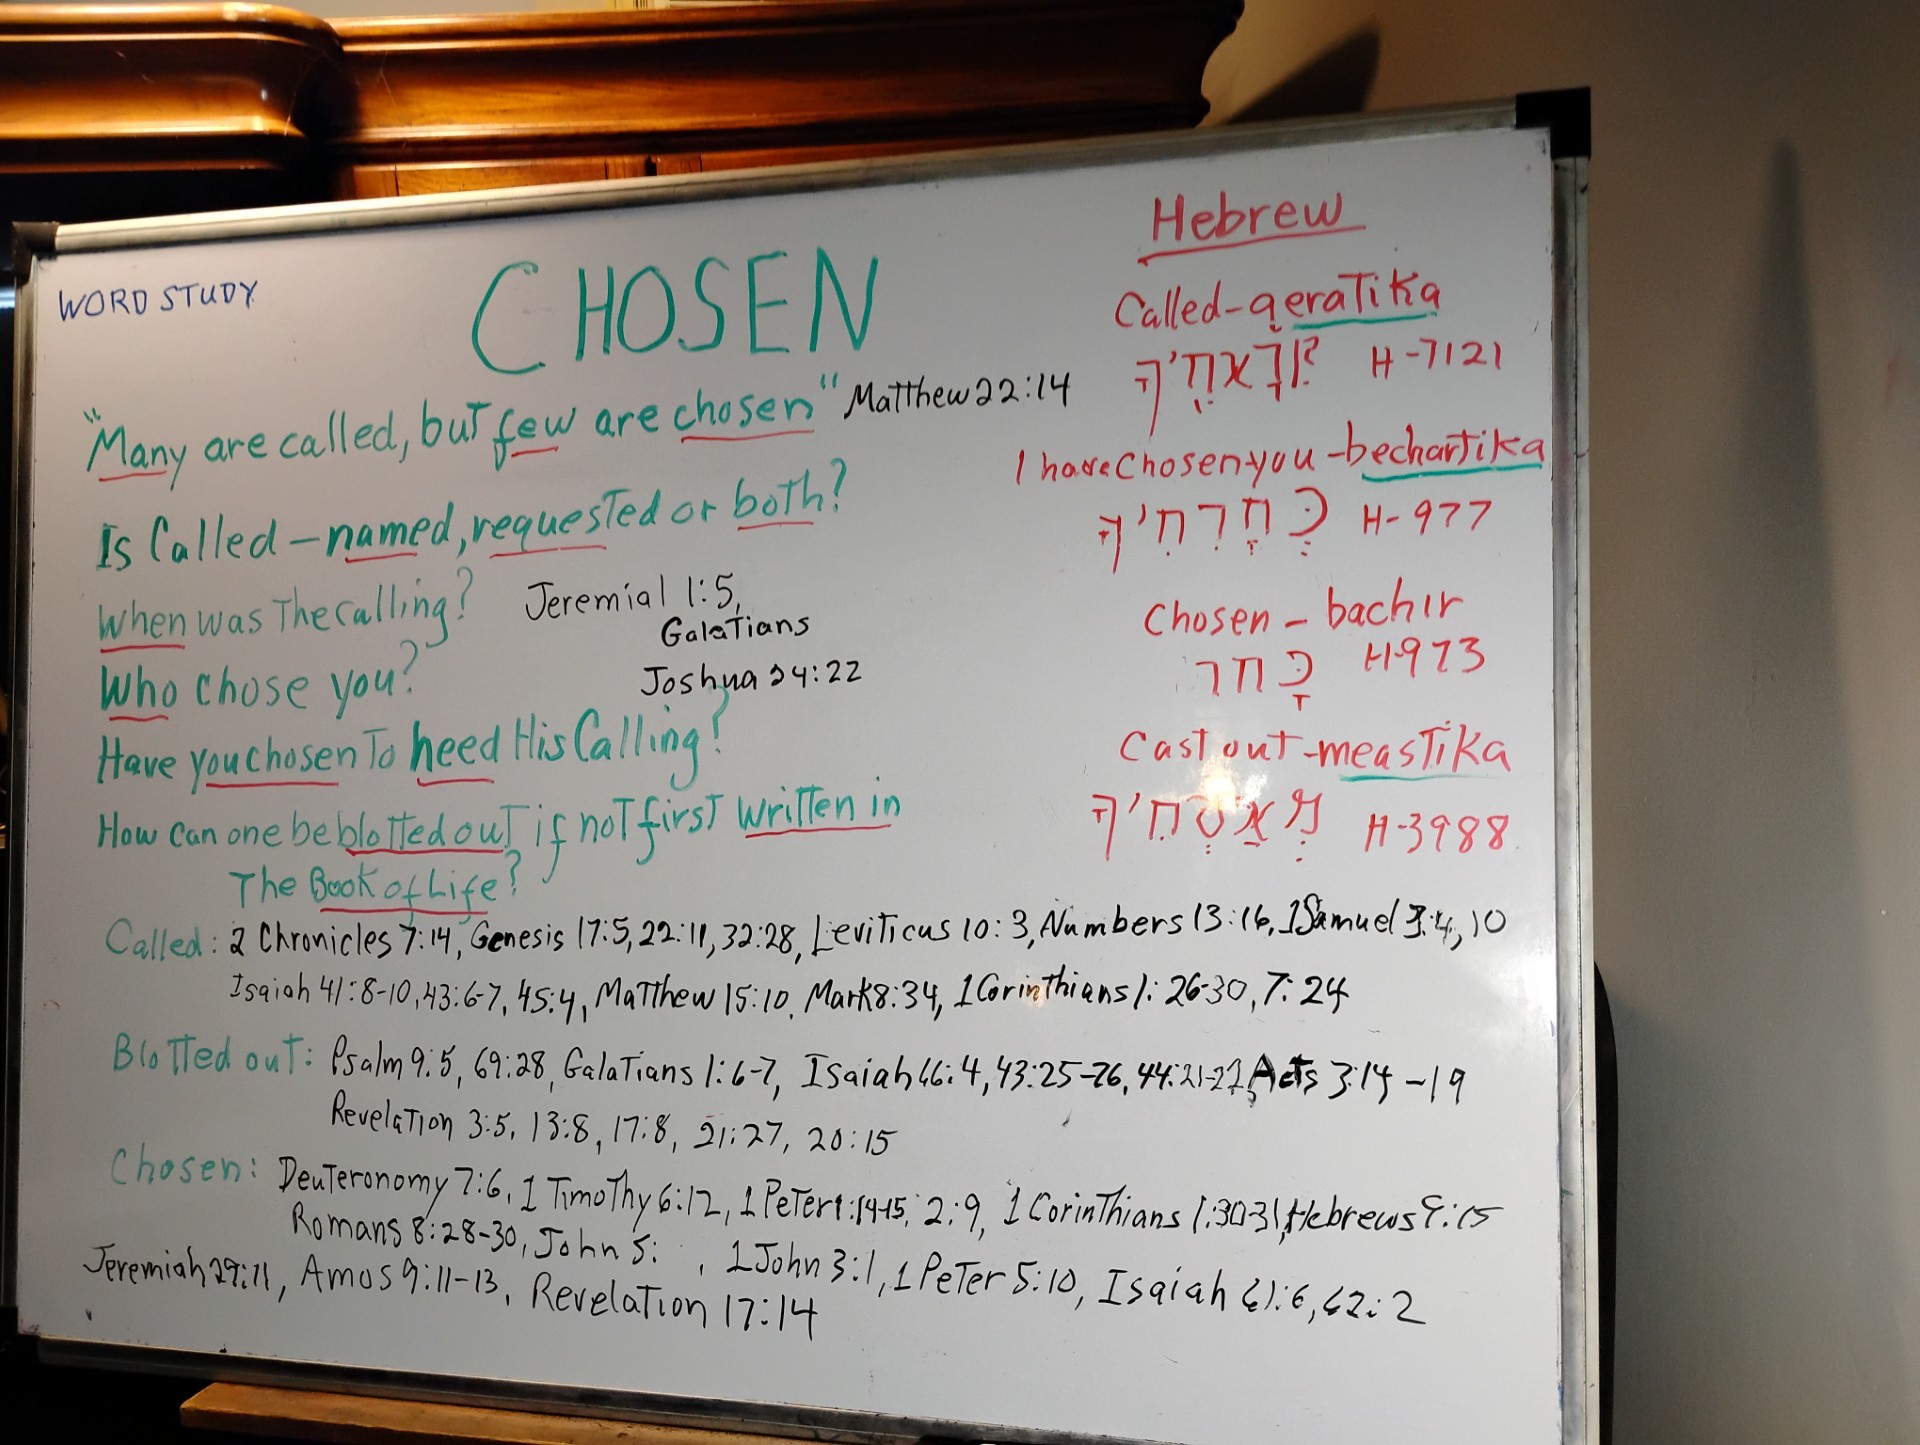 WORD STUDY
CHOSEN
"Many are called, but few are chosen" Matthew 22:14
Is Called – named, requested or both?
When was The calling? Jeremial 1:5,
Galatians
Who chose you? Joshua 24:22
Have you chosen To heed His Calling?
How can one be blotted out if not first written in
The Book of Life?
Hebrew
Called - qeratika
H-7121
I have chosen you - bechartika
H-977
Chosen - bachir
H-973
Cast out - meastika
H-3988
Called: 2 Chronicles 7:14, Genesis 17:5, 22:11, 32:28, Leviticus 10:3, Numbers 13:16, 1 Samuel 3:4, 10
Isaiah 41:8-10, 43:6-7, 45:4, Matthew 15:10, Mark 8:34, 1 Corinthians 1:26-30, 7:24
Blotted out: Psalm 9:5, 69:28, Galatians 1:6-7, Isaiah 46:4, 43:25-26, 44:21-22, Acts 3:14-19
Revelation 3:5, 13:8, 17:8, 21:27, 20:15
Chosen: Deuteronomy 7:6, 1 Timothy 6:12, 1 Peter 1:14-15, 2:9, 1 Corinthians 1:30-31, Hebrews 9:15
Romans 8:28-30, John 5: , 1 John 3:1, 1 Peter 5:10, Isaiah 61:6, 62:2
Jeremiah 29:11, Amos 9:11-13, Revelation 17:14